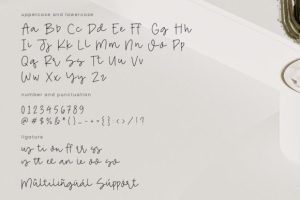 uppercase and lowercase
Aa Bb Cc Dd Ee Ff Gg Hh
Ii Jj Kk Ll Mm Nn Oo Pp
Qq Rr Ss Tt Uu Vv
Ww Xx Yy Zz
number and punctuation
0123456789
ligature
Mùltilíngúál Súpport